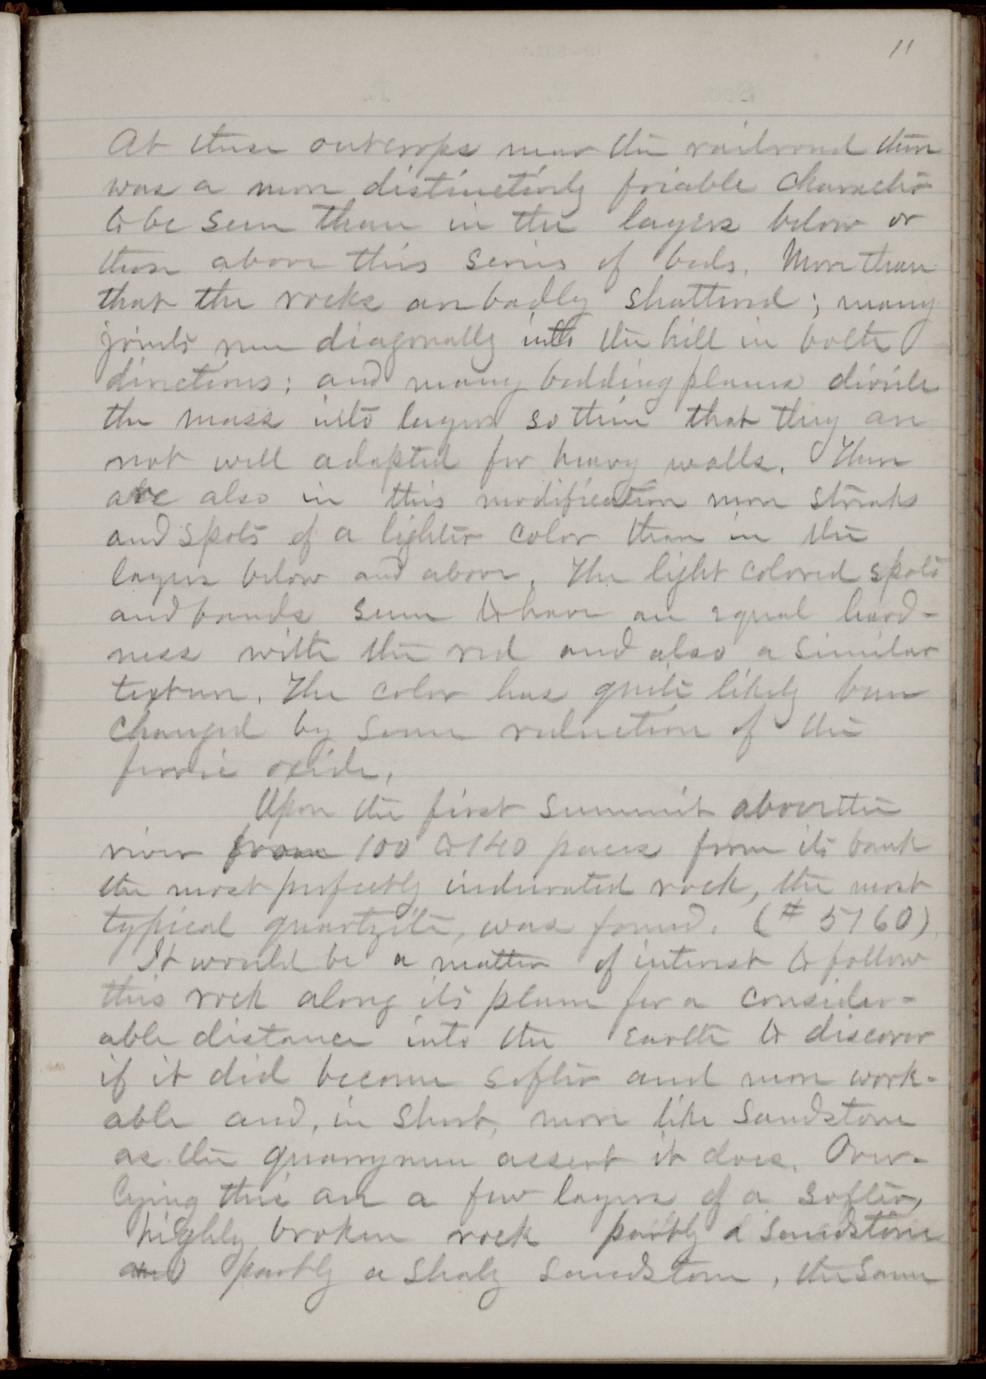 11
At these outcrops near the railroad there
was a more distinctively friable character
to be seen than in the layers below or
those above this series of beds. More than
that the rocks are badly shattered; many
joints run diagonally into the hill in both
directions; and many bedding planes divide
the mass into layers so thin that they are
not well adapted for heavy walls. There
are also in this modification more streaks
and spots of a lighter color than in the
layers below and above. The light colored spots
and bands seem to have an equal hard-
ness with the red and also a similar
texture. The color has quite likely been
changed by some reduction of the
ferric oxide.
Upon the first summit above the
river from 100 to 140 paces from its bank
the most perfectly indurated rock, the most
typical quartzite, was found. (# 5760)
It would be a matter of interest to follow
this rock along its plane for a consider-
able distance into the earth to discover
if it did become softer and more work-
able and, in short, more like sandstone
as the quarrymen assert it does. Over-
lying this are a few layers of a softer,
highly broken rock partly a sandstone
and partly a shaly sandstone, the same